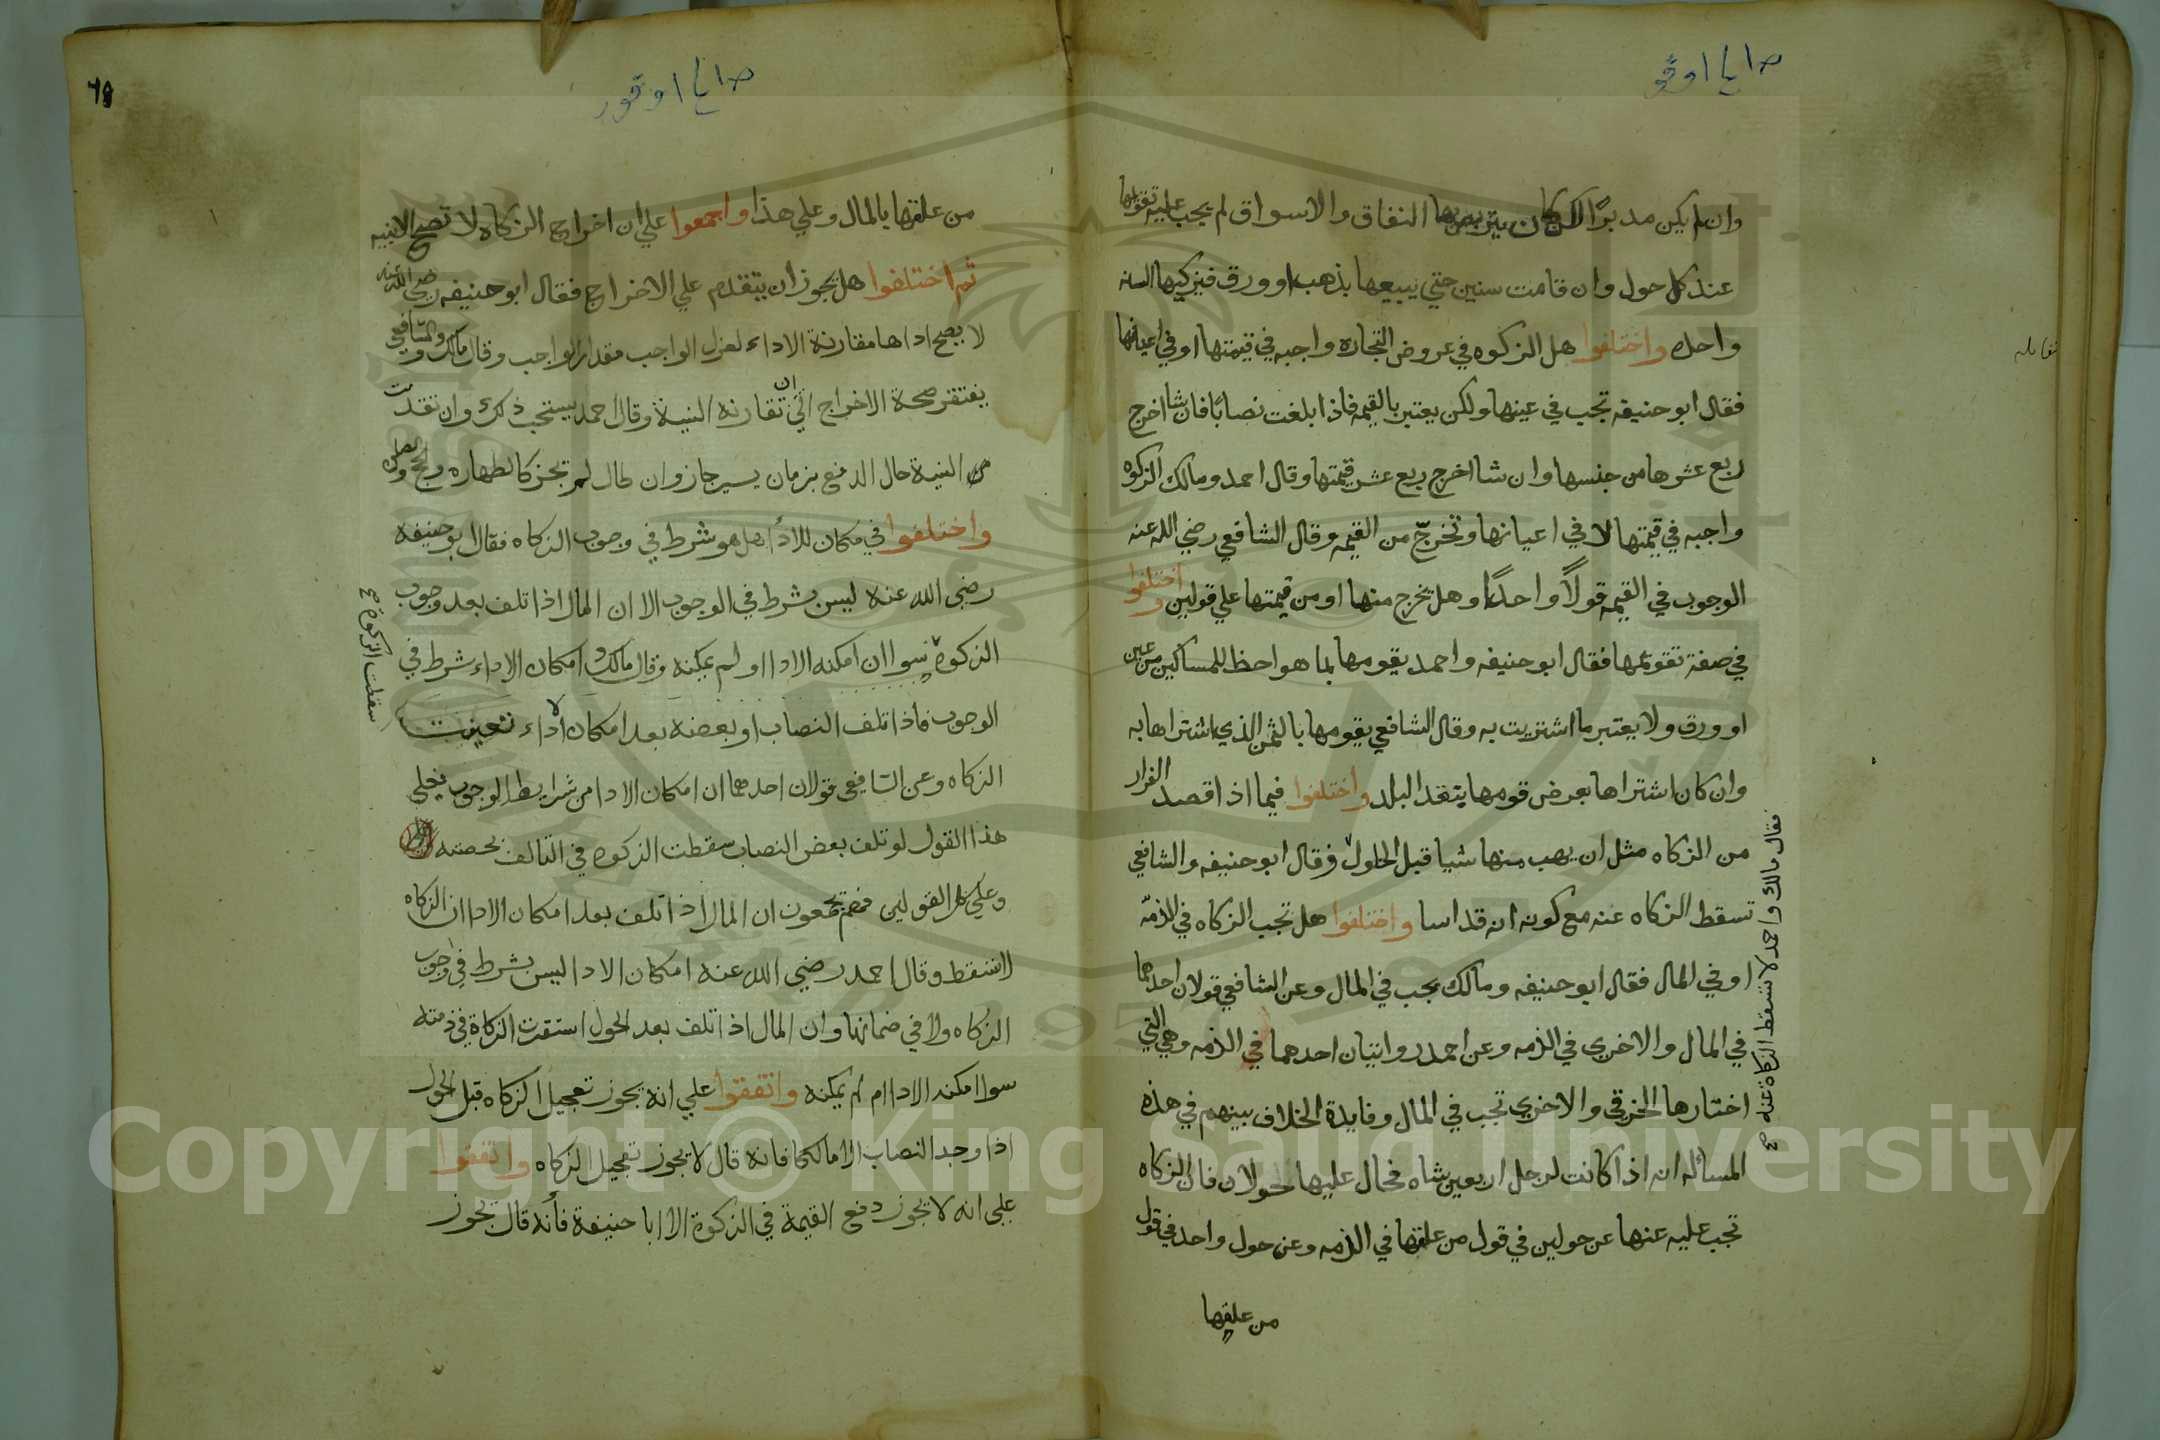 وان لم يكن مدبرًا لكن كان يتربص بها النفاق والاسواق لم يجب عليه تقويمها
عند كل حول وان قامت سنين حتي يبيعها بذهب او ورق فيزكيها لسنه
واحده واختلفوا هل الزكوه في عروض التجاره واجبه في قيمتها او في اعيانها
فقال ابو حنيفه تجب في عينها ولكن يعتبر بالقيمه فاذا بلغت نصابًا فان شا اخرج
ربع عشرها من جنسها وان شا اخرج ربع عشر قيمتها وقال احمد ومالك الزكوه
واجبه في قيمتها لا في اعيانها وتخرج من القيمه وقال الشافعي رضي الله عنه
الوجوب في القيمه قولاً واحدًا وهل يخرج منها او من قيمتها علي قولين واختلفوا
في صفة تقويمها فقال ابو حنيفه واحمد يقومها بما هو احظ للمساكين من عين
او ورق ولا يعتبر ما اشتريت به وقال الشافعي يقومها بالثمن الذي اشتراها به
وان كان اشتراها بعرض قومها بنقد البلد واختلفوا فيما اذا قصد الفرار
من الزكاه مثل ان يهب منها شيا قبل الحلول فقال ابو حنيفه والشافعي
تسقط الزكاه عنه مع كونه انه قد اسا واختلفوا هل تجب الزكاه في الذمّه
او في المال فقال ابو حنيفه ومالك يجب في المال وعن الشافعي قولان احدهما
في المال والاخرى في الذمه وعن احمد روايتان احدهما في الذمه وهي التي
اختارها الخرقي والاخرى تجب في المال وفايدة الخلاف بينهم في هذه
المسأله انه اذا كانت لرجل اربعين شاه فحال عليها حولان فان الزكاه
تجب عليه عنها عن حولين في قول من علقها في الذمه وعن حول واحد في قول
من علقها
وقال مالك واحمد لا تسقط الزكاة عنه صح
من علقها بالمال وعلي هذا واجمعوا علي ان اخراج الزكاه لا تصح الا بنيه
ثم اختلفوا هل يجوز ان يتقدم علي الاخراج فقال ابو حنيفه رضي الله عنه
لا يصح اداها مقارنة الاداء لعزل الواجب مقدار الواجب وقال مالك والشافعي
يفتقر صحة الاخراج الي ان تقارنه النية وقال احمد يستحب ذلك وان تقدمت
النية حال الدفع بزمان يسير جاز وان طال لم تجز كالطهاره
واختلفوا في مكان للادا هل هو شرط في وجوب الزكاه فقال ابو حنيفه
رضي الله عنه ليس بشرط في الوجوب الا ان المال اذا تلف بعد وجوب
الزكوة سوا ان امكنه الادا او لم يمكنه وقال مالك امكان الاداء شرط في
سقطت الزكوة صح
الوجوب فاذا تلف النصاب او بعضه بعد امكان الاداء تعينت
الزكاه وعن الشافعي قولان احدهما ان امكان الادا من شرايط الوجوب فعلي
هذا القول لو تلف بعض النصاب سقطت الزكوه في التالف بحصته
وعلي كلا القولين فهم يجمعون ان المال اذا تلف بعد امكان الادا ان الزكاه
لا تسقط وقال احمد رضي الله عنه امكان الادا ليس بشرط في وجوب
الزكاه ولا في ضمانها وان المال اذا تلف بعد الحول استقرت الزكاة في ذمته
سوا امكنه الادا ام لم يمكنه واتفقوا علي انه يجوز تعجيل الزكاه قبل الحول
اذا وجد النصاب الا مالكا فانه قال لا يجوز تعجيل الزكاه واتفقوا
علي انه لا يجوز دفع القيمة في الزكوة الا ابا حنيفة فأنه قال يجوز
Copyright © King Saud University